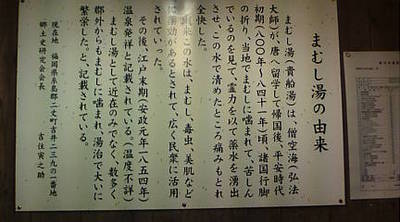 まむし湯の由来
まむし湯(貴船湯)は、僧空海(弘法
大師)が、唐へ留学して帰国後、平安時代
初期(八〇〇年~八四一年)頃、諸国行脚
の折り、当地でまむしに噛まれて、苦しん
でいるのを見て、霊力を以て薬水を湧出
させ、この水で清めたところ痛みもとれ
全快した。
来この水は、まむし、毒虫、美肌など
に効があるとされて、広く民衆に活用
されていった。
その後、江戸末期(安政元年一八五四年)
温泉発祥と記載されている。(温度不詳)
まむし湯として近在のみでなく、数多く
郡外からもまむしに噛まれ、湯治で大いに
繁栄した。と、記載されている。
現在地 福岡県糸島郡二丈町吉井二三九の一番地
郷土史研究会会長 吉住寅之助